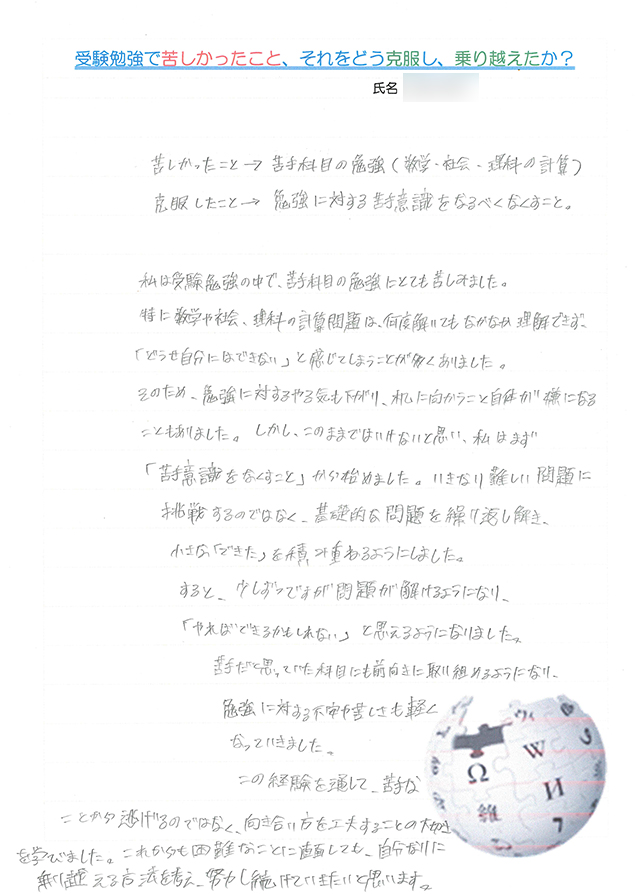 受験勉強で苦しかったこと、それをどう克服し、乗り越えたか？
氏名
苦しかったこと→ 苦手科目の勉強(数学・社会・理科の計算)
克服したこと→ 勉強に対する苦手意識をなるべくなくすこと。
私は受験勉強の中で、苦手科目の勉強にとても苦しみました。
特に数学や社会、理科の計算問題は、何度解いてもなかなか理解できず、
「どうせ自分にはできない」と感じてしまうことが多くありました。
そのため、勉強に対するやる気も下がり、机に向かうこと自体が嫌になる
こともありました。しかし、このままではいけないと思い、私はまず
「苦手意識をなくすこと」から始めました。いきなり難しい問題に
挑戦するのではなく、基礎的な問題を繰り返し解き、
小さな「できた」を積み重ねるようにしました。
すると、少しずつですが問題が解けるようになり、
「やればできるかもしれない」と思えるようになりました。
苦手だと思っていた科目にも前向きに取り組めるようになり、
勉強に対する不安や苦しさも軽く
なっていきました。
この経験を通して、苦手な
ことから逃げるのではなく、向き合い方を工夫することの大切さ
を学びました。これからも困難なことに直面しても、自分なりに
乗り越える方法を考え、努力し続けていきたいと思います。
Ω
W
И
ウィ
維